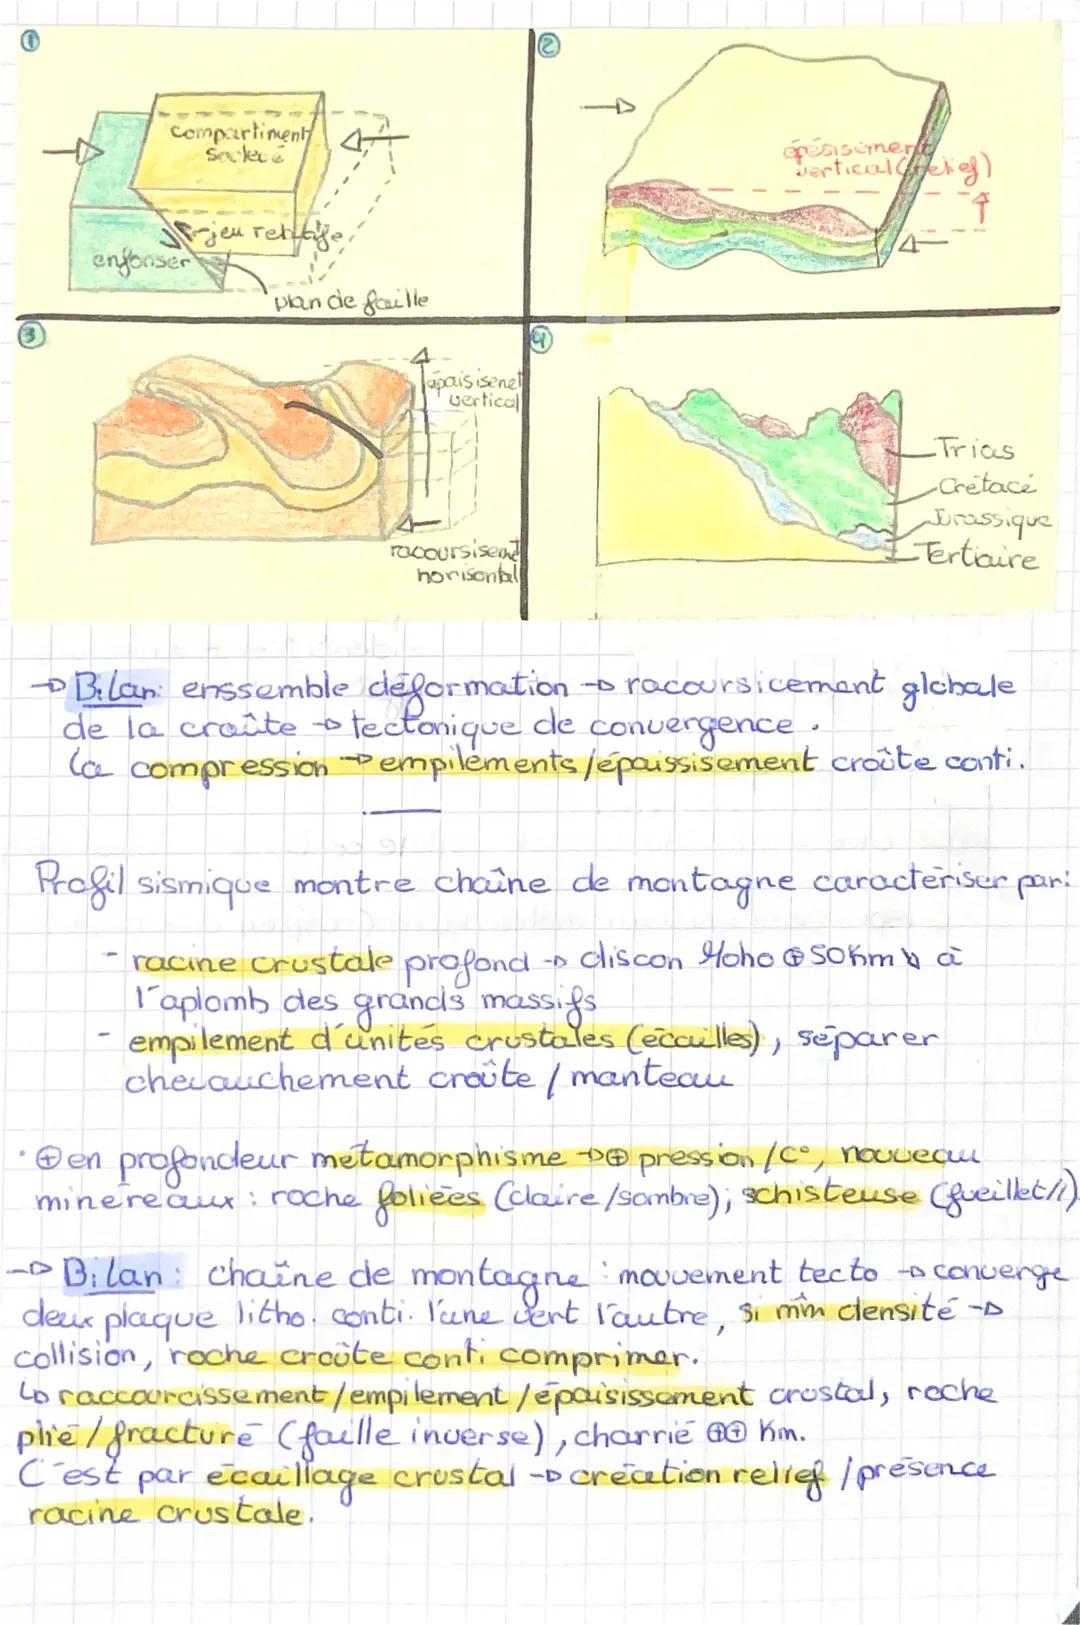 ①
compartiment
soulevé
jeu
enfonser
plan de faille
②
épésisiment
vertical (relief)
③
épaisisenet
vertical
racoursisemt
horisontal
④
Trias
Crétacé
Jurassique
Tertiaire
→ Bilan: enssemble déformation → racoursicement globale
de la croûte → tectonique de convergence.
La compression → empilements/épaissisement croûte conti.
Profil sismique montre chaîne de montagne caractériser par:
- racine crustale profond → discon Moho ⊕ 50Km ↘ à
l'aplomb des grands massifs
- empilement d'unités crustales (écailles), séparer
chevauchement croûte / manteau
· ⊕ en profondeur métamorphisme → ⊕ pression/C°, nouveau
minéreaux: roche foliées (claire/sombre); schisteuse (fueillet//).
→ Bilan: chaîne de montagne: mouvement tecto → converge
deux plaque litho. conti. l'une vert l'autre, si mm̂ densité →
collision, roche croûte conti comprimer.
↳ raccourcissement/empilement/épaisissement crustal, roche
plié/fracturé (faille inverse), charrié ⊕⊕ Km.
C'est par écaillage crustal → création relief / présence
racine crustale.